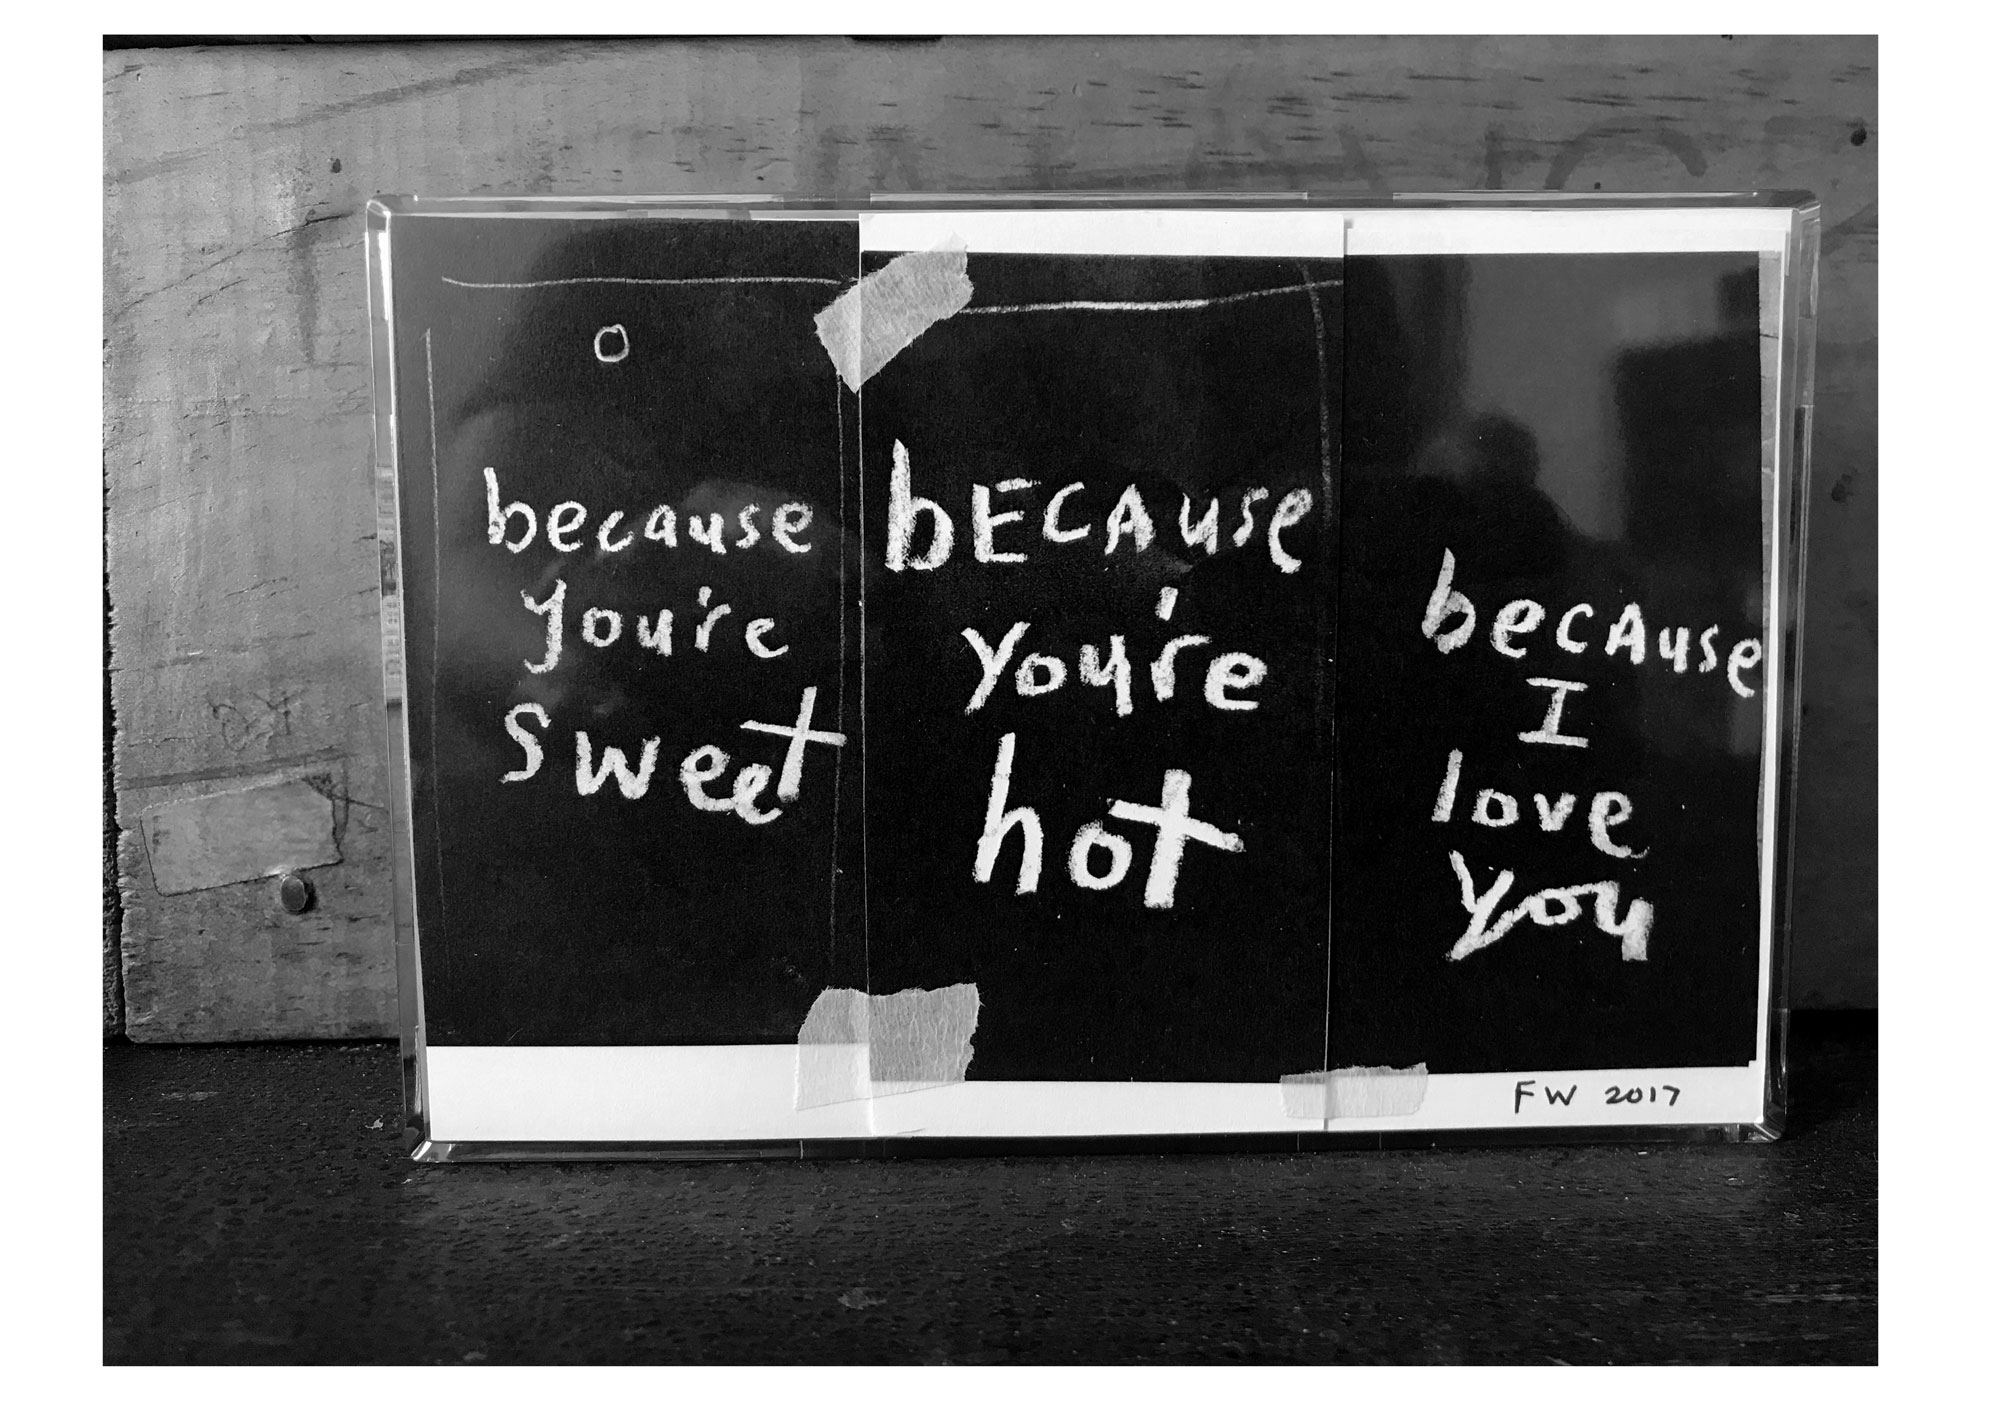 because
you're
sweet
bECAuse
you're
hot
becAuse
I
love
you
FW 2017